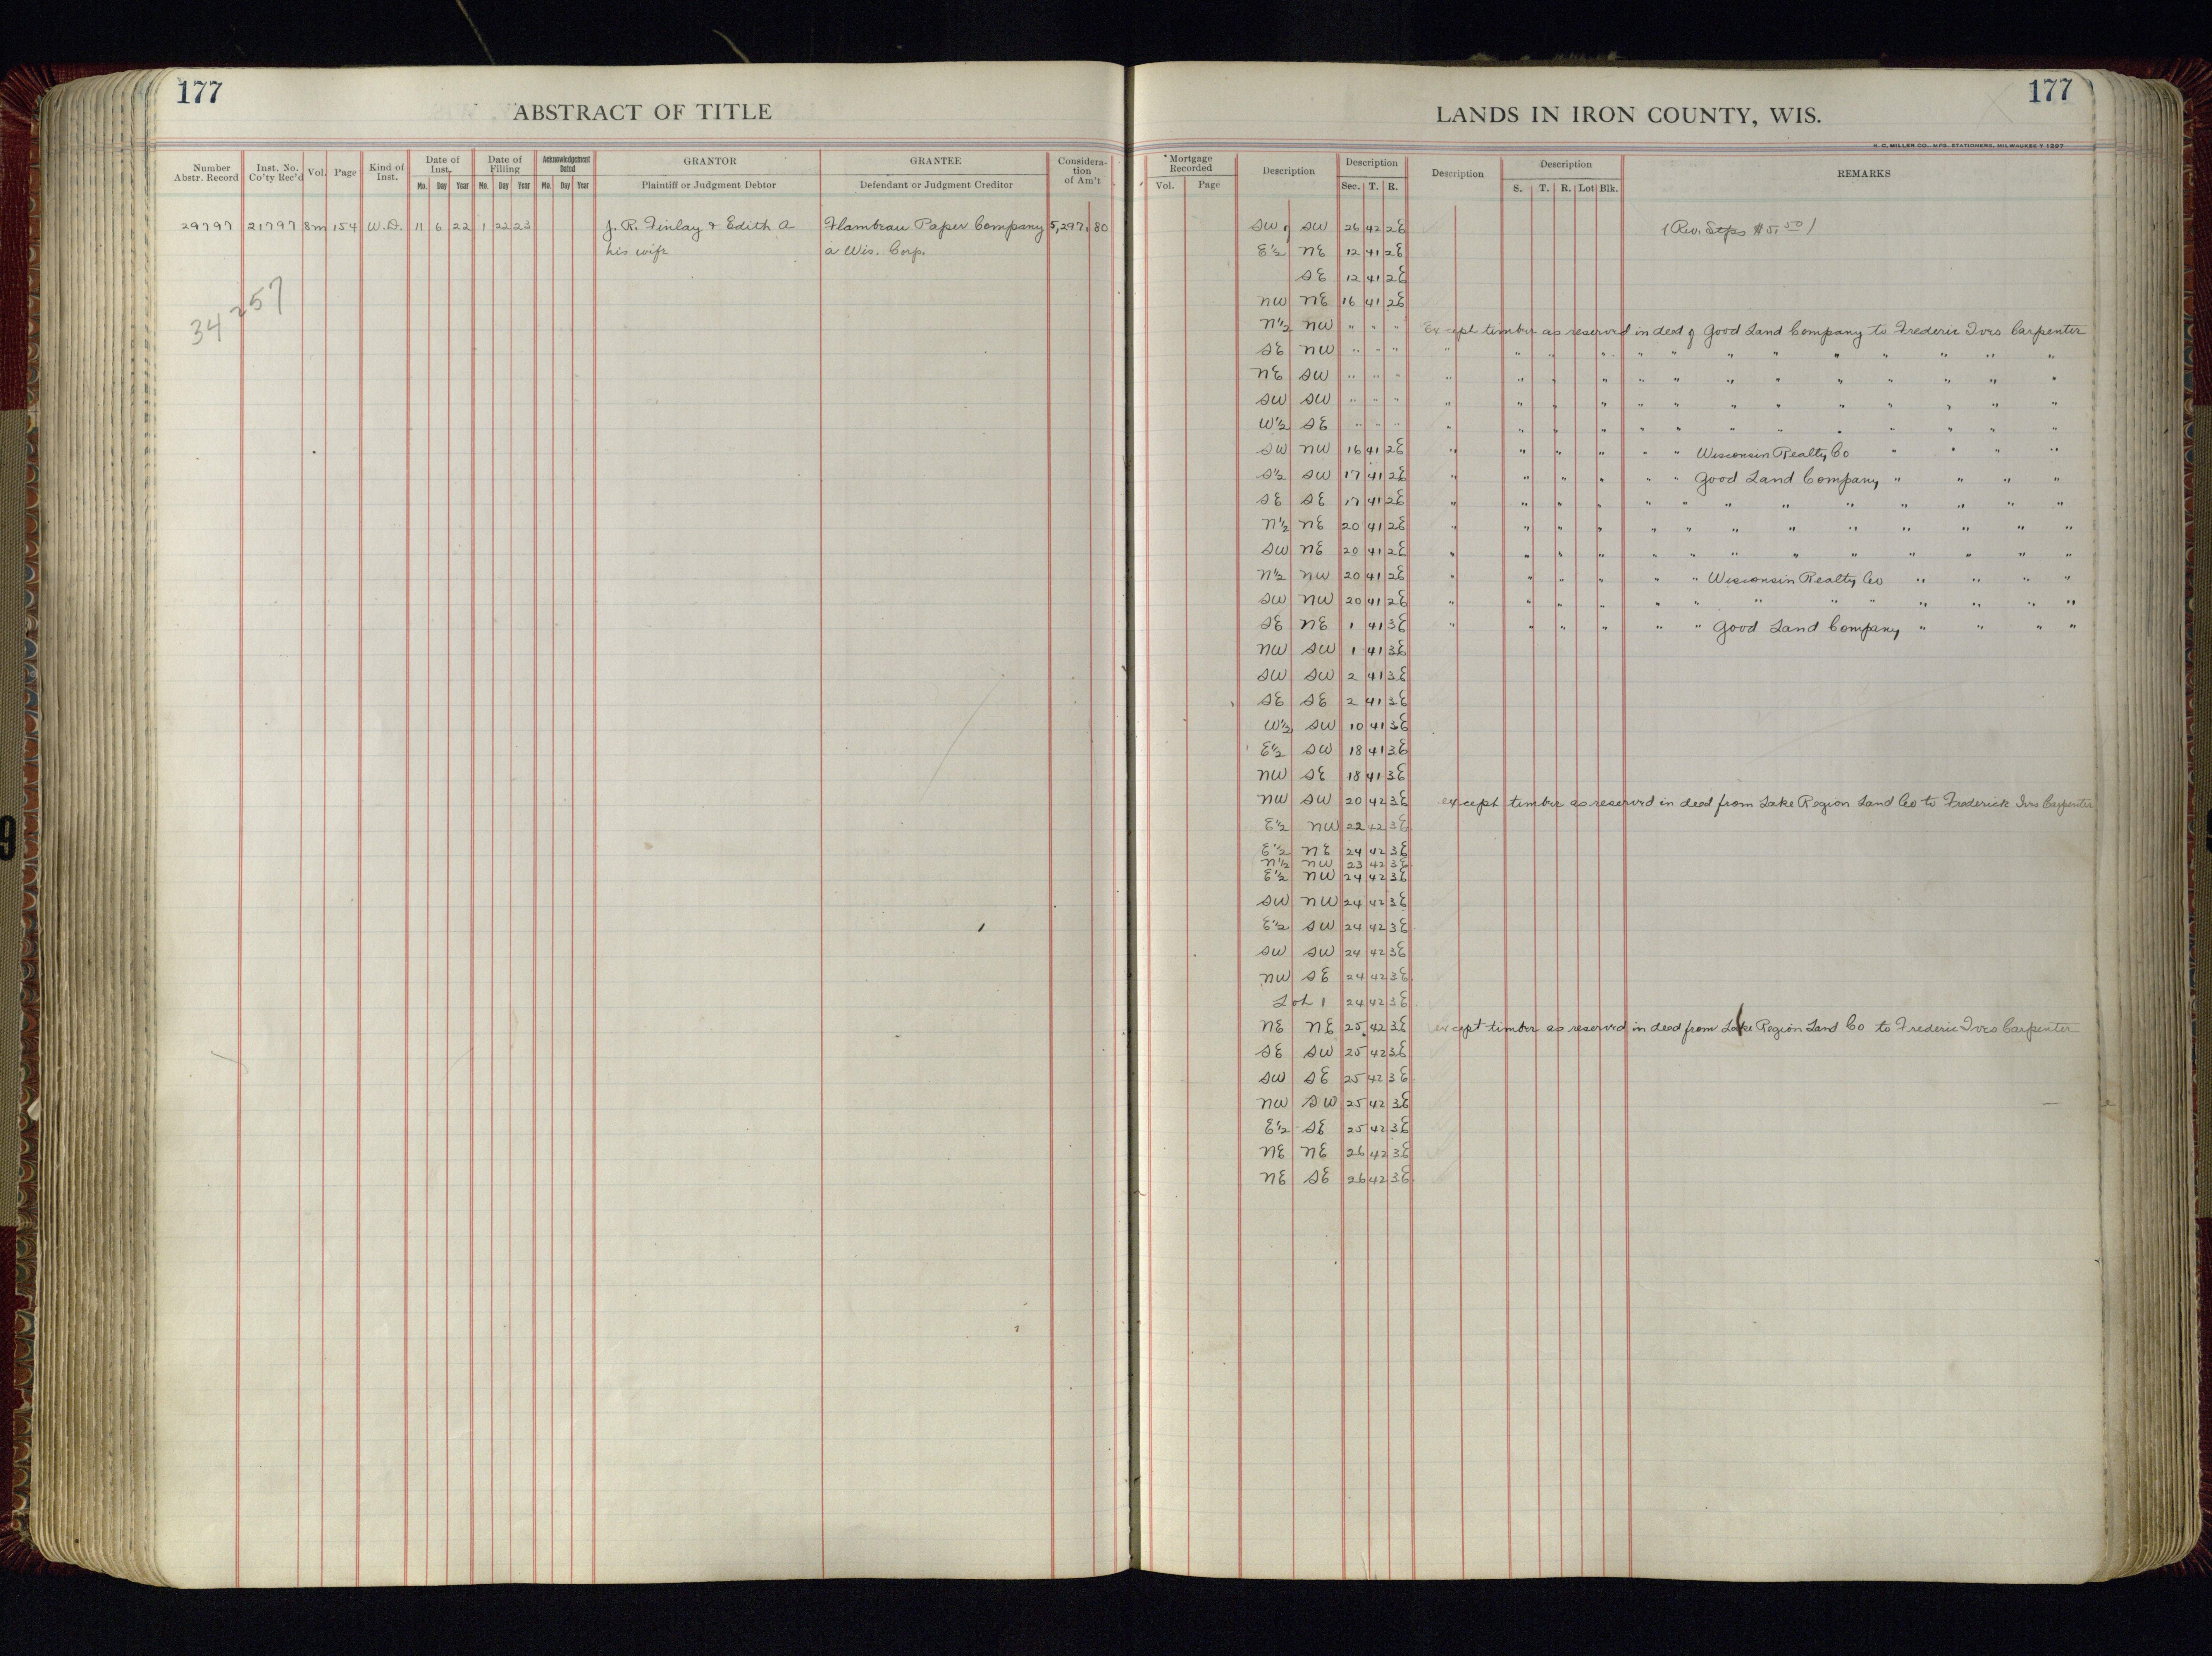 177
ABSTRACT OF TITLE
Number Abstr. Record | Inst. No. Co'ty Rec'd | Vol. | Page | Kind of Inst. | Date of Inst. Mo. Day Year | Date of Filling Mo. Day Year | Acknowledgement Dated Mo. Day Year | GRANTOR Plaintiff or Judgment Debtor | GRANTEE Defendant or Judgment Creditor | Considera-tion of Am't
29797 21797 8m 154 W.D. 11 6 22 1 22 23 J. R. Finlay & Edith A Flambeau Paper Company 5,297.80
his wife a Wis. Corp.
34257
177
LANDS IN IRON COUNTY, WIS.
H. C. MILLER CO., MFG. STATIONERS, MILWAUKEE
Mortgage Recorded Vol. Page | Description | Description Sec. T. R. | Description | Description S. T. R. Lot Blk. | REMARKS
SW SW 26 42 2E (Rev. Stps $5.50)
E½ NE 12 41 2E
SE 12 41 2E
NW NE 16 41 2E
N½ NW " " " Except timber as reserved in deed of Good Land Company to Frederic Ives Carpenter
SE NW " " " " " " " " " " " " " " " "
NE SW " " " " " " " " " " " " " " " "
SW SW " " " " " " " " " " " " " " " "
W½ SE " " " " " " " " " " " " " " " "
SW NW 16 41 2E " " " " " " Wisconsin Realty Co " " " "
S½ SW 17 41 2E " " " " " " Good Land Company " " " "
SE SE 17 41 2E " " " " " " " " " " " " "
N½ NE 20 41 2E " " " " " " " " " " " " "
SW NE 20 41 2E " " " " " " " " " " " " "
N½ NW 20 41 2E " " " " " " Wisconsin Realty Co " " " "
SW NW 20 41 2E " " " " " " " " " " " " "
SE NE 1 41 3E " " " " " " Good Land Company " " " "
NW SW 1 41 3E
SW SW 2 41 3E
SE SE 2 41 3E
W½ SW 10 41 3E
E½ SW 18 41 3E
NW SE 18 41 3E
NW SW 20 42 3E except timber as reserved in deed from Lake Region Land Co to Frederick Ives Carpenter
E½ NW 22 42 3E
E½ NE 24 42 3E
N½ NW 23 42 3E
E½ NW 24 42 3E
SW NW 24 42 3E
E½ SW 24 42 3E
SW SW 24 42 3E
NW SE 24 42 3E
Lot 1 24 42 3E
NE NE 25 42 3E except timber as reserved in deed from Lake Region Land Co to Frederic Ives Carpenter
SE SW 25 42 3E
SW SE 25 42 3E
NW SW 25 42 3E
E½ SE 25 42 3E
NE NE 26 42 3E
NE SE 26 42 3E